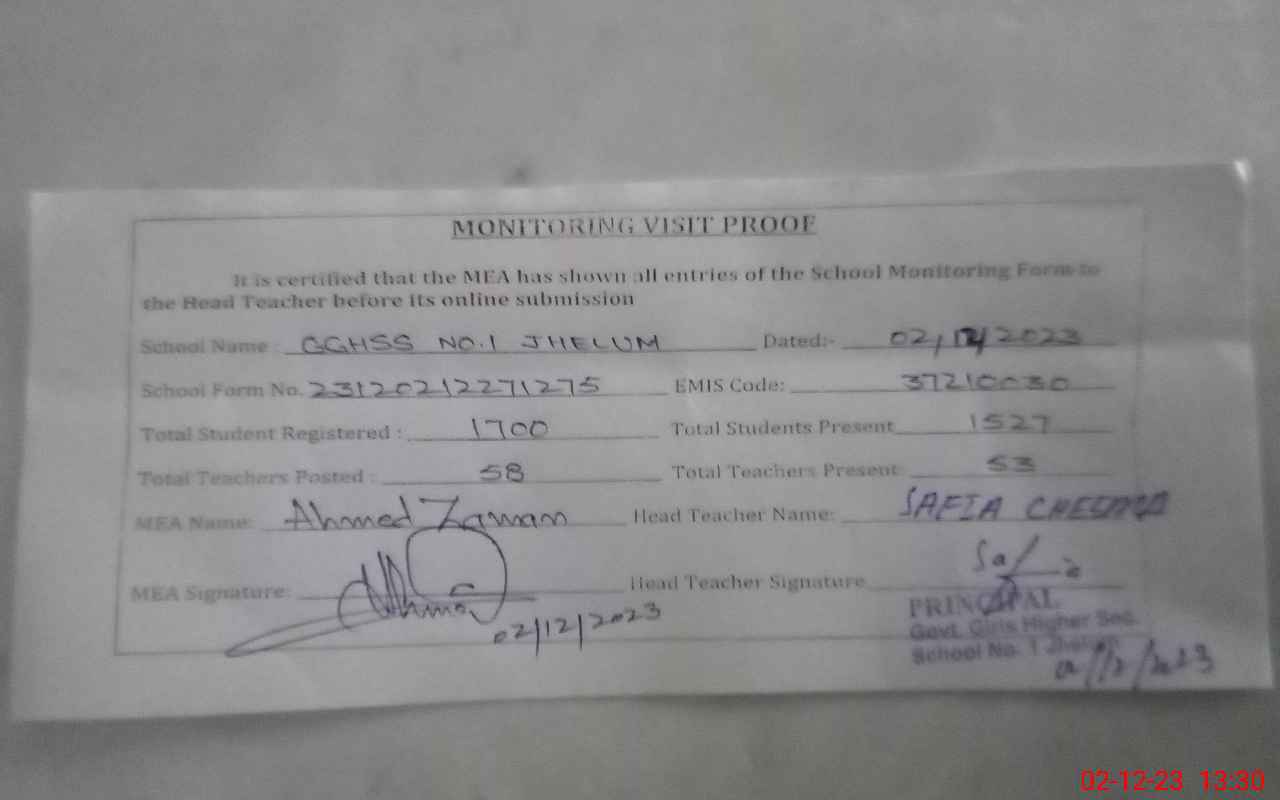 MONITORING VISIT PROOF
It is certified that the MEA has shown all entries of the School Monitoring Form to
the Head Teacher before its online submission
School Name : GGHSS NO.1 JHELUM Dated:- 02/12/2023
School Form No. 23120212271275 EMIS Code: 37210030
Total Student Registered : 1700 Total Students Present 1527
Total Teachers Posted : 58 Total Teachers Present: 53
MEA Name: Ahmed Zaman Head Teacher Name: SAFIA CHEEMA
MEA Signature: Head Teacher Signature Safia
02/12/2023
PRINCIPAL
Govt. Girls Higher Sec.
School No. 1 Jhelum
02/12/2023
02-12-23 13:30